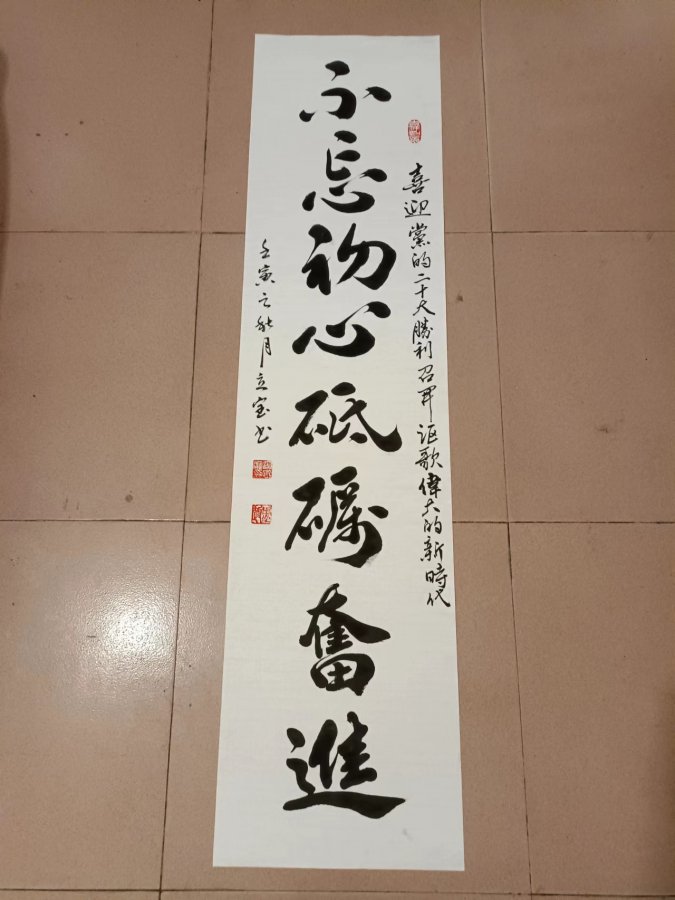 喜迎黨的二十大勝利召開謳歌偉大的新時代
不忘初心砥礪奮進
壬寅之秋月立宝书